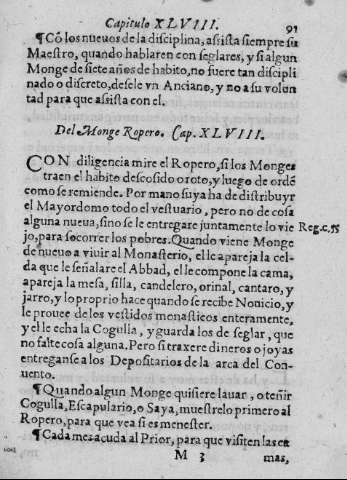 Capitulo XLVIII. 91
¶Cõ los nueuos de la disciplina, assista siempre su
Maestro, quando hablaren con seglares, y si algun
Monge de siete años de habito, no fuere tan discipli
nado o discreto, desele vn Anciano, y no a su volun
tad para que assista con el.
Del Monge Ropero. Cap. XLVIII.
CON diligencia mire el Ropero, si los Monges
traen el habito descosido o roto, y luego de ordẽ
como se remiende. Por mano suya ha de distribuyr
el Mayordomo todo el vestuario, pero no de cosa
alguna nueua, sino se le entregare juntamente lo vie Reg.c.55
jo, para socorrer los pobres. Quando viene Monge
de nueuo a viuir al Monasterio, el le apareja la cel-
da que le señalare el Abbad, el le compone la cama,
apareja la mesa, silla, candelero, orinal, cantaro, y
jarro, y lo proprio hace quando se recibe Nouicio, y
le prouee de los vestidos monasticos enteramente,
y el le echa la Cogulla, y guarda los de seglar, que
no falte cosa alguna. Pero si traxere dineros o joyas
entreganse a los Depositarios de la arca del Con-
uento.
¶Quando algun Monge quisiere lauar, o teñir
Cogulla, Escapulario, o Saya, muestrelo primero al
Ropero, para que vea si es menester.
¶Cada mes acuda al Prior, para que visiten las ca
M 3 mas,